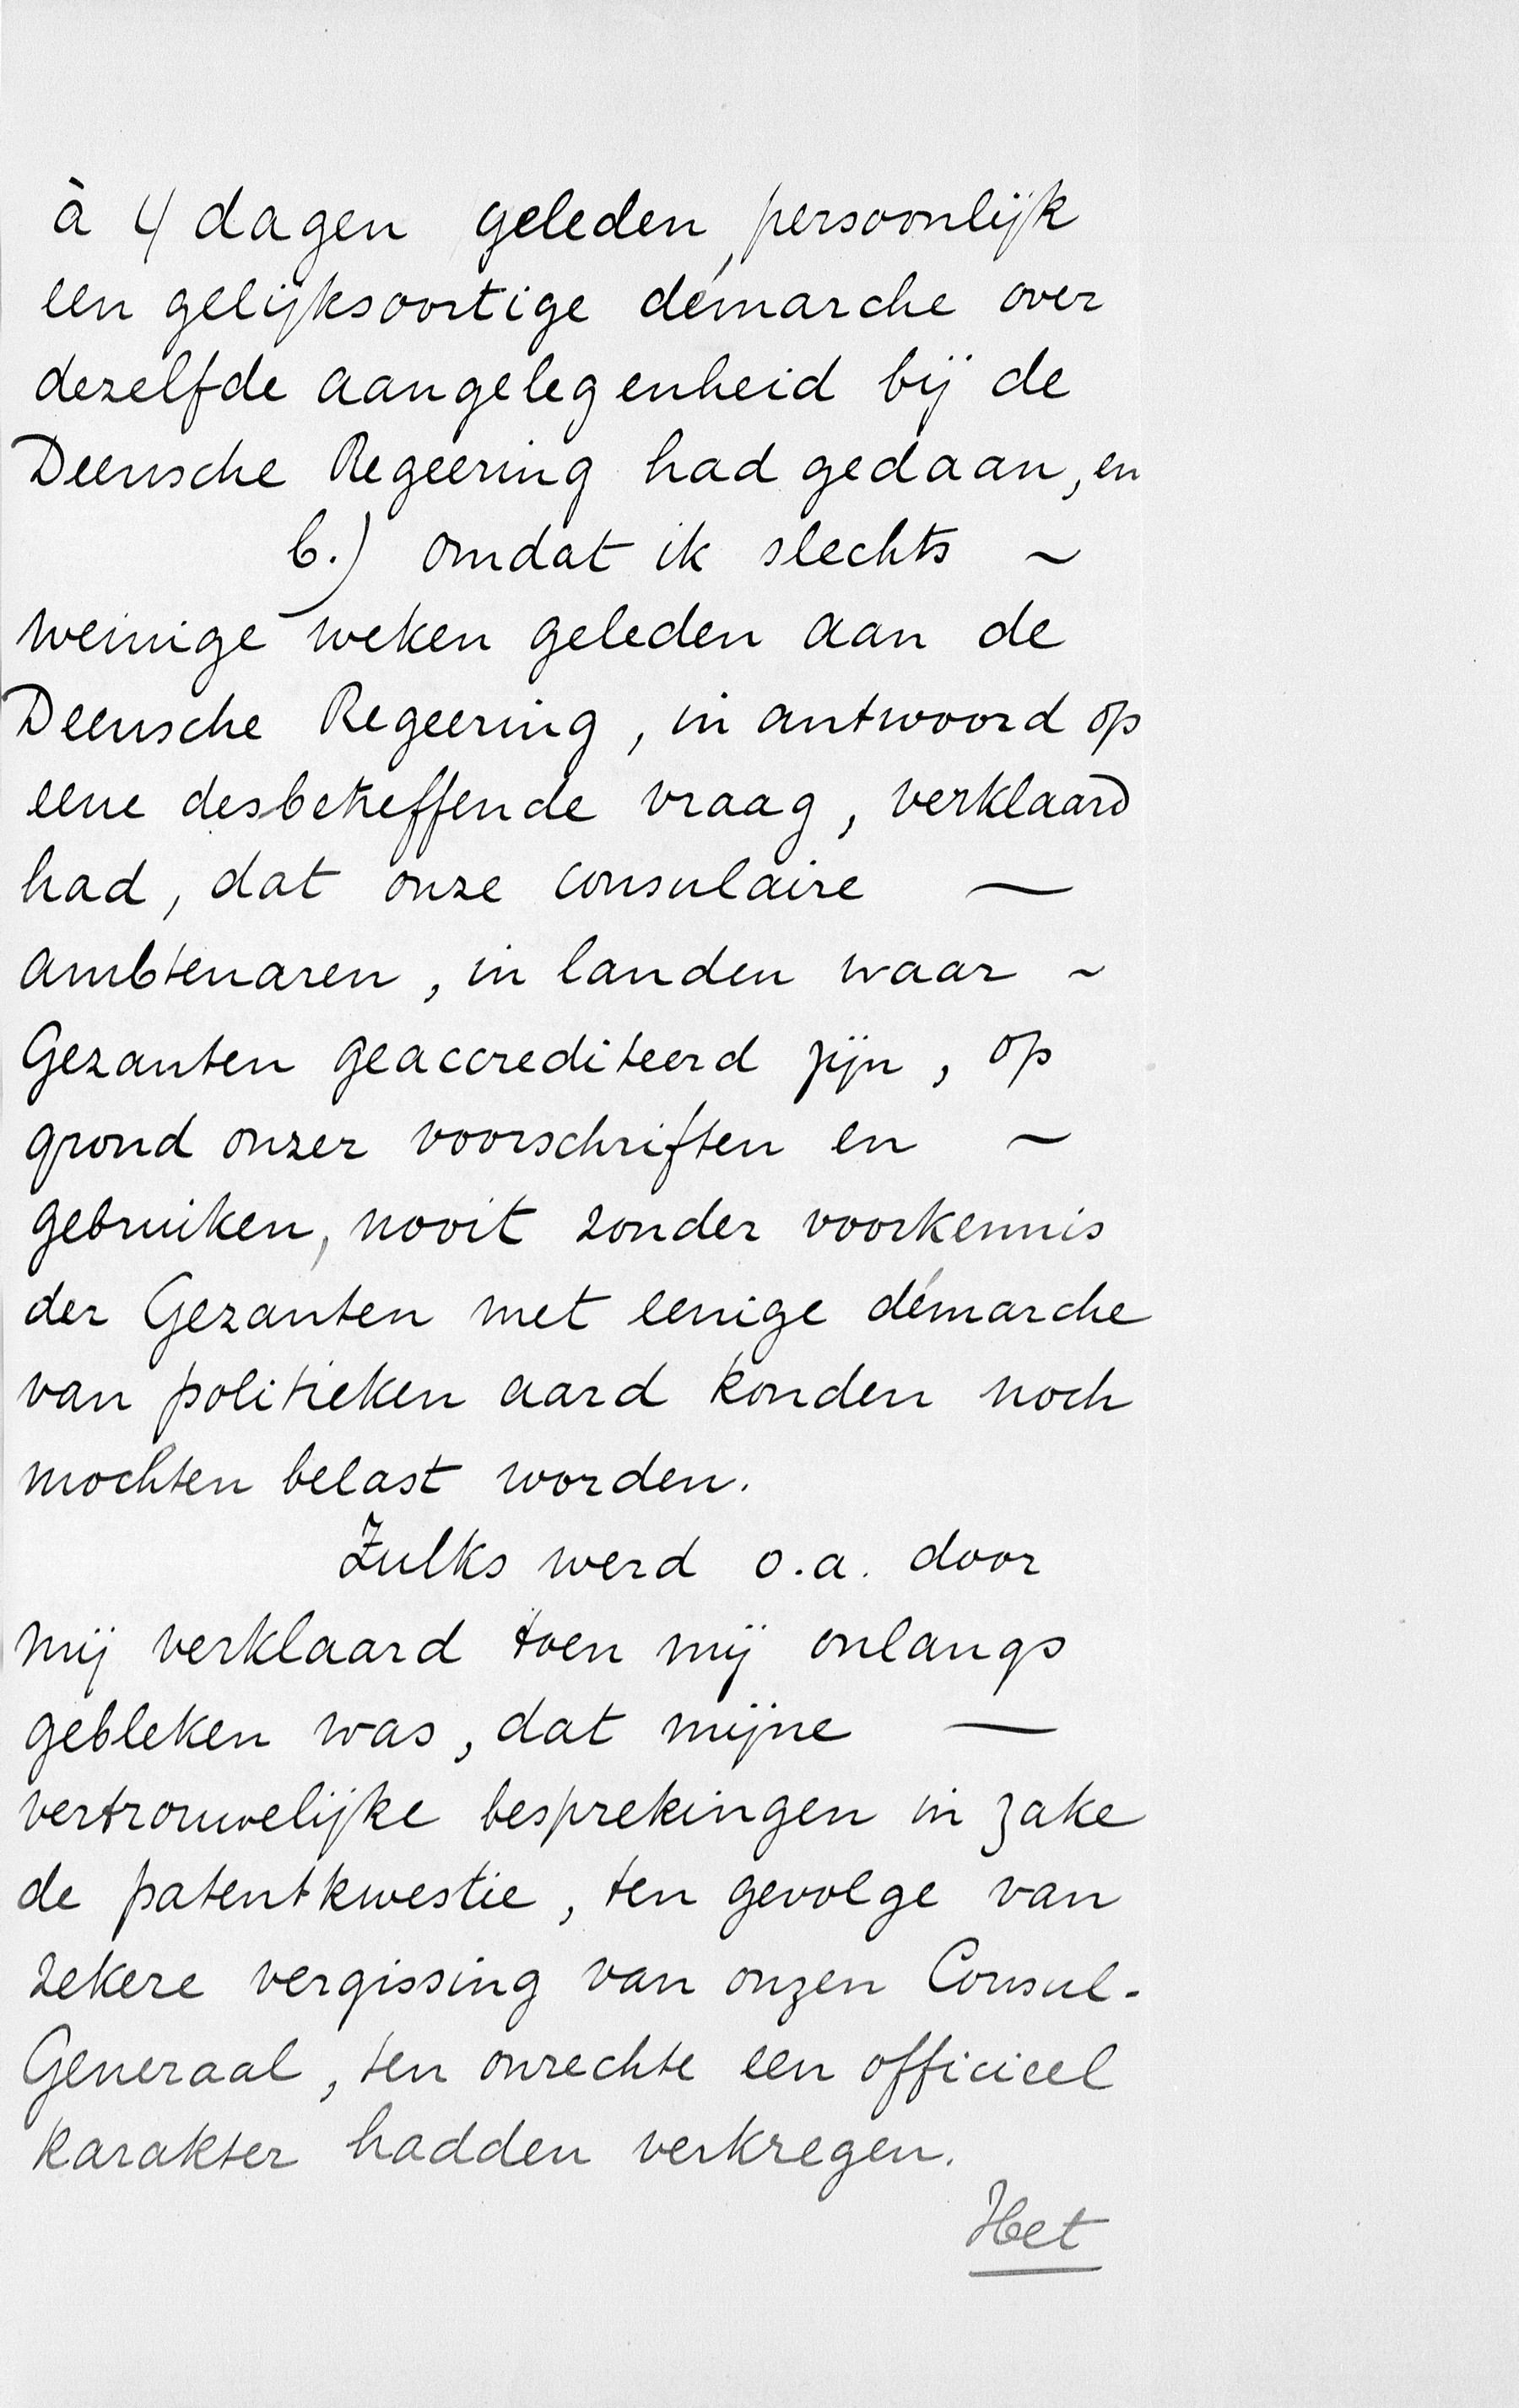 à 4 dagen geleden, persoonlijk
een gelijksoortige démarche over
dezelfde aangelegenheid bij de
Deensche Regeering had gedaan, en
b.) omdat ik slechts ~
weinige weken geleden aan de
Deensche Regeering, in antwoord op
eene desbetreffende vraag, verklaard
had, dat onze consulaire —
ambtenaren, in landen waar ~
Gezanten geaccrediteerd zijn, op
grond onzer voorschriften en ~
gebruiken, nooit zonder voorkennis
der Gezanten met eenige démarche
van politieken aard konden noch
mochten belast worden.
Zulks werd o.a. door
mij verklaard toen mij onlangs
gebleken was, dat mijne —
vertrouwelijke besprekingen in zake
de patentkwestie, ten gevolge van
zekere vergissing van onzen Consul-
Generaal, ten onrechte een officieel
karakter hadden verkregen.
Het